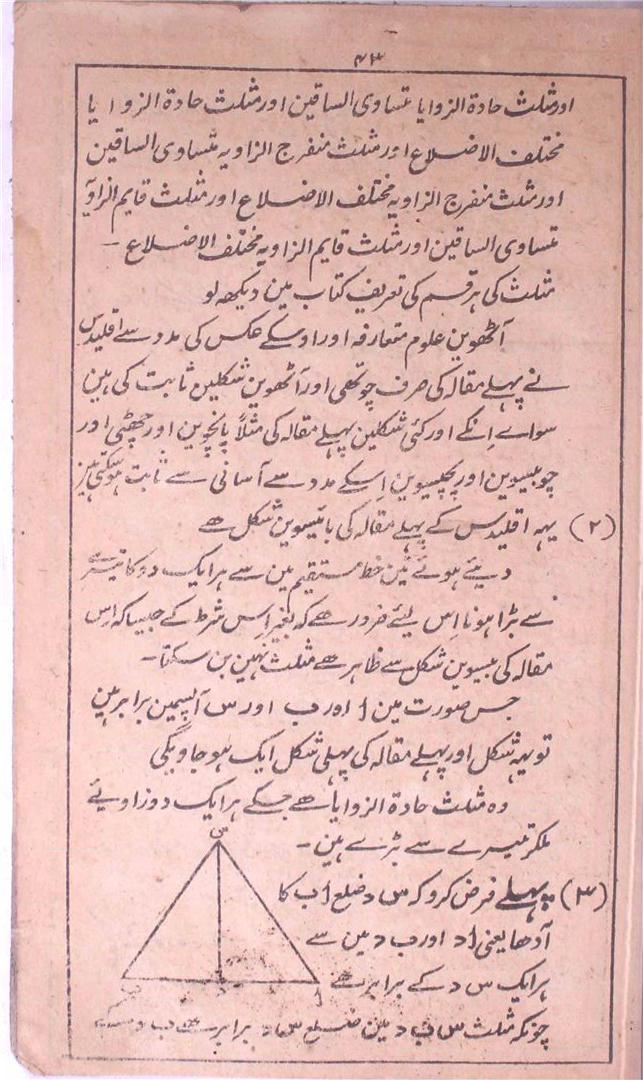 ۴۳
اور مثلث حادة الزوایا متساوی الساقین اور مثلث حادة الزوایا
مختلف الاضلاع اور مثلث منفرج الزاویہ متساوی الساقین
اور مثلث منفرج الزاویہ مختلف الاضلاع اور مثلث قایم الزاویہ
متساوی الساقین اور مثلث قایم الزاویہ مختلف الاضلاع ـ
مثلث کی ہر قسم کی تعریف کتاب مین دیکھ لو
آٹھوین علوم متعارفہ اور اوسکے عکس کی مدد سے اقلیدس
نے پہلے مقالہ کی صرف چوتھی اور آٹھوین شکلین ثابت کی ہین
سواے اِنکے اور کئی شکلین پہلے مقالہ کی مثلاً پانچوین اور چھٹی اور
چوبیسوین اور پچیسوین اِسکے مدد سے آسانی سے ثابت ہوسکتی ہین
(۲) یہہ اقلیدس کے پہلے مقالہ کی بائیسوین شکل ھے
دیئے ہوئے تین خط مستقیم مین سے ہر ایک دو کا تیسرے
سے بڑا ہونا اِس لیئے ضرور ھے کہ بغیر اِس شرط کے جیسا کہ اِس
مقالہ کی بیسوین شکل سے ظاہر ھے مثلث نہین بن سکتا ـ
جس صورت مین ا اور ب اور س آپسمین برابر ہین
تو یہہ شکل اور پہلے مقالہ کی پہلی شکل ایک ہو جاویگی
وہ مثلث حادة الزوایا ھے جسکے ہر ایک دو زاویئے
ملکر تیسرے سے بڑے ہین ـ
(۳) پہلے فرض کرو کہ س د ضلع ا ب کا
آدھا یعنی ا د اور ب د مین سے
ہر ایک س د کے برابر ھے
چونکہ مثلث س ب د مین ضلع س د برابر ھے ب د کے
س
ب
د
ا